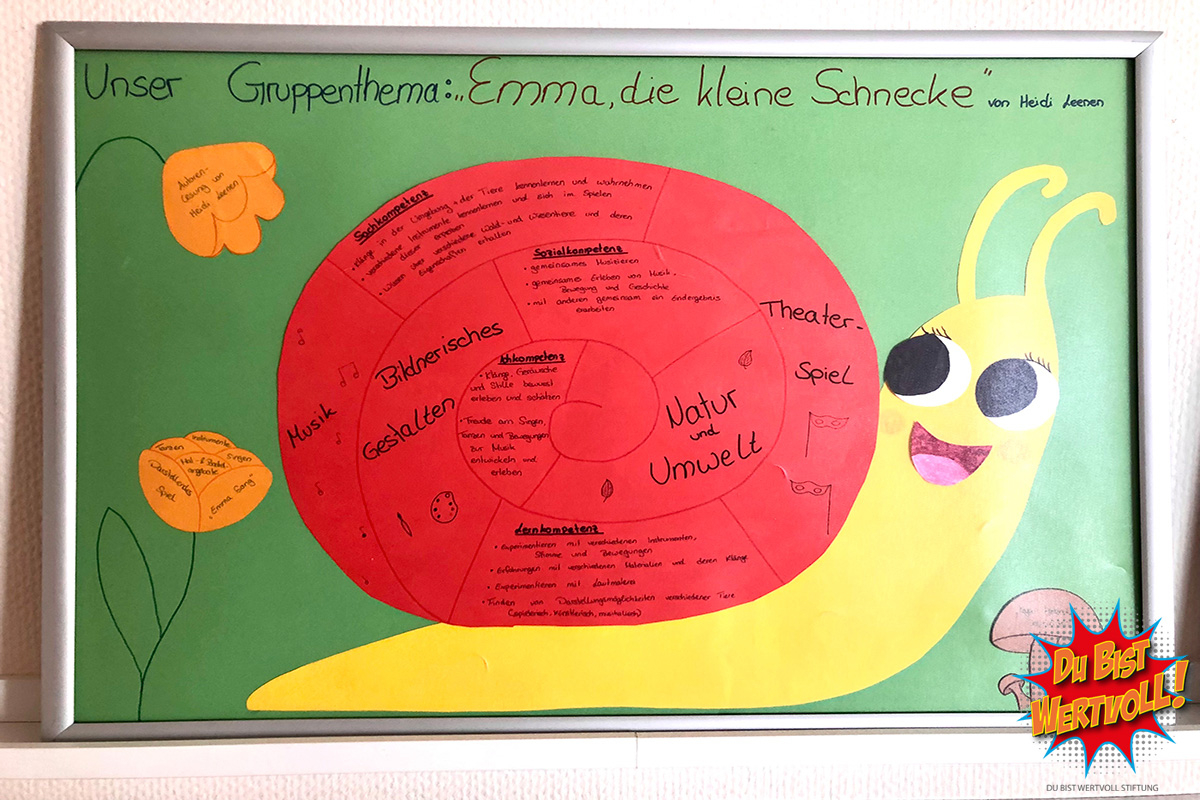 Unser Gruppenthema: „Emma, die kleine Schnecke" von Heidi Leenen
Autoren-
lesung von
Heidi Leenen
Sachkompetenz
• Klänge in der Umgebung + der Tiere kennenlernen und wahrnehmen
• verschiedene Instrumente kennenlernen und sich im Spielen
dieser erproben
• Wissen über verschiedene Wald- und Wiesentiere und deren
Eigenschaften erhalten
Sozialkompetenz
• gemeinsames Musizieren
• gemeinsames Erleben von Musik,
Bewegung und Geschichte
• mit anderen gemeinsam ein Endergebnis
erarbeiten
Theater-
Spiel
Musik
Bildnerisches
Gestalten
Ichkompetenz
• Klänge, Geräusche
und Stille bewusst
erleben und schätzen
• Freude am Singen,
Tanzen und Bewegungen
zur Musik
entwickeln und
erleben
Natur
und
Umwelt
Instrumente
Tanzen
Singen
Mal- & Bastel-
angebote
Darstellendes
Spiel
Emma Song
Lernkompetenz
• Experimentieren mit verschiedenen Instrumenten,
Stimme und Bewegungen
• Erfahrungen mit verschiedenen Materialien und deren Klänge
• Experimentieren mit Lautmalerei
• Finden von Darstellungsmöglichkeiten verschiedener Tiere
(spielerisch, künstlerisch, musikalisch)
DU BIST
WERTVOLL!
DU BIST WERTVOLL STIFTUNG